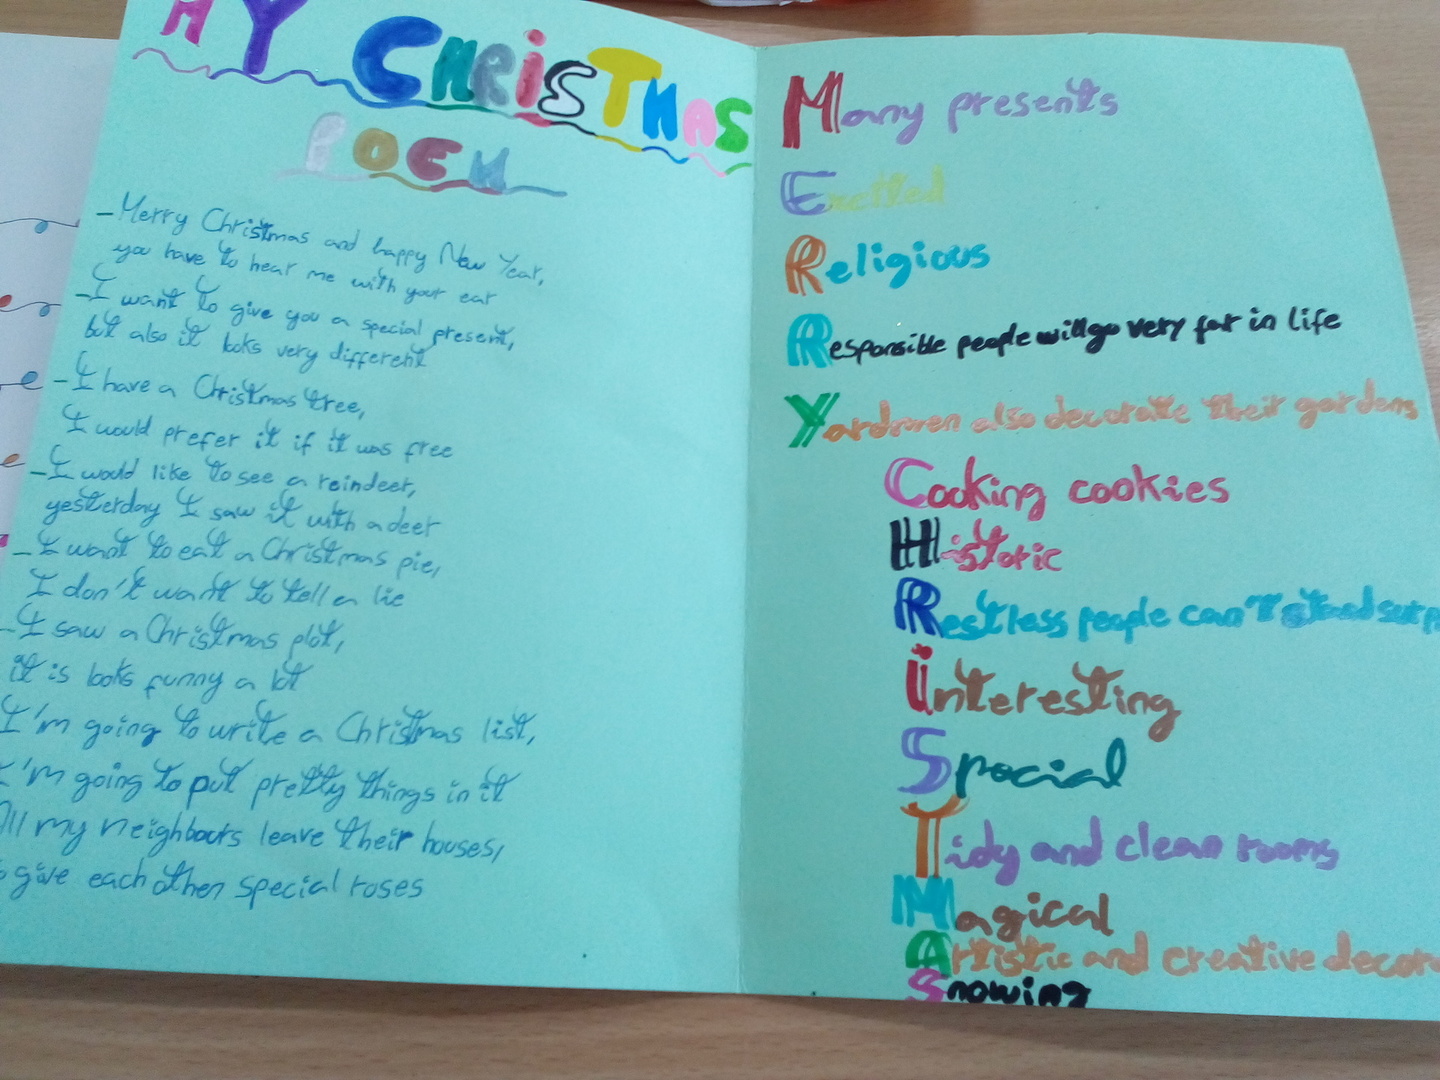 MY CHRISTMAS
POEM
- Merry Christmas and happy New Year,
you have to hear me with your ear
- I want to give you a special present,
but also it looks very different
- I have a Christmas tree,
I would prefer it if it was free
- I would like to see a reindeer,
yesterday I saw it with a deer
- I want to eat a Christmas pie,
I don't want to tell a lie
- I saw a Christmas plot,
it is looks funny a lot
I'm going to write a Christmas list,
I'm going to put pretty things in it
All my neighbours leave their houses,
give each other special roses
Many presents
Excited
Religious
Responsible people will go very far in life
Yardmen also decorate their gardens
Cooking cookies
Historic
Restless people can't stand
Interesting
Special
Tidy and clean rooms
Magical
Artistic and creative
Snowing